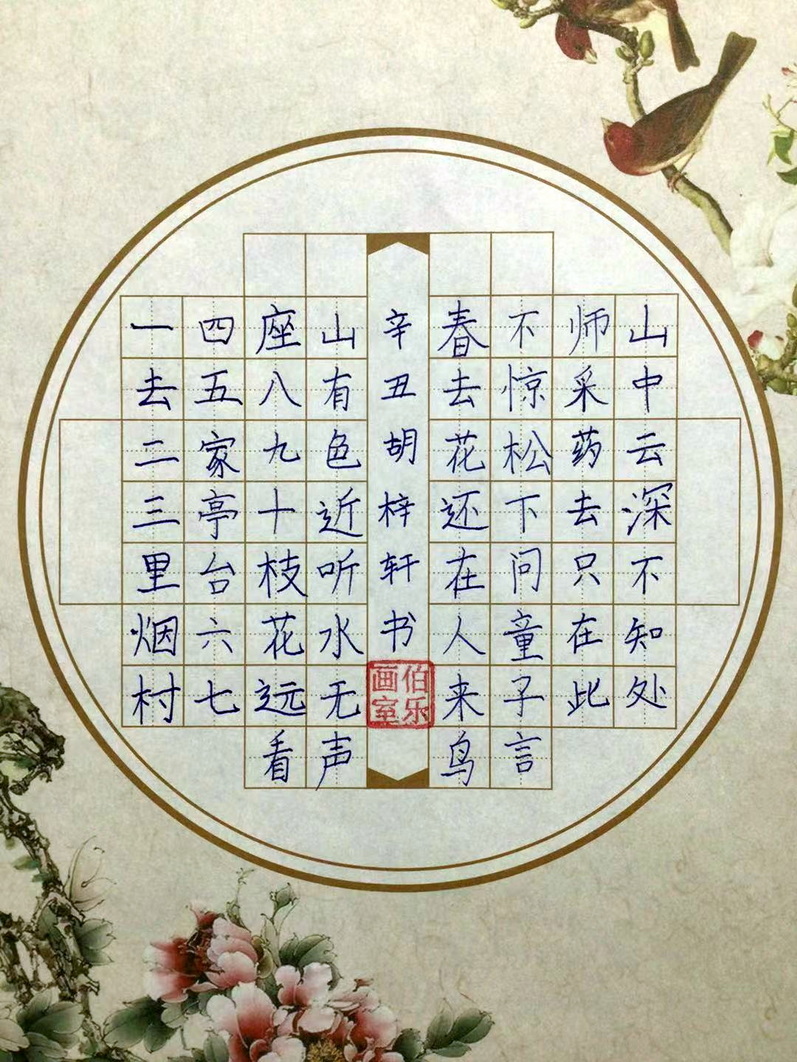 一去二三里烟村
四五家亭台六七
座八九十枝花远看
山有色近听水无声
春去花还在人来鸟
不惊松下问童子言
师采药去只在此
山中云深不知处
辛丑胡梓轩书
伯乐画室